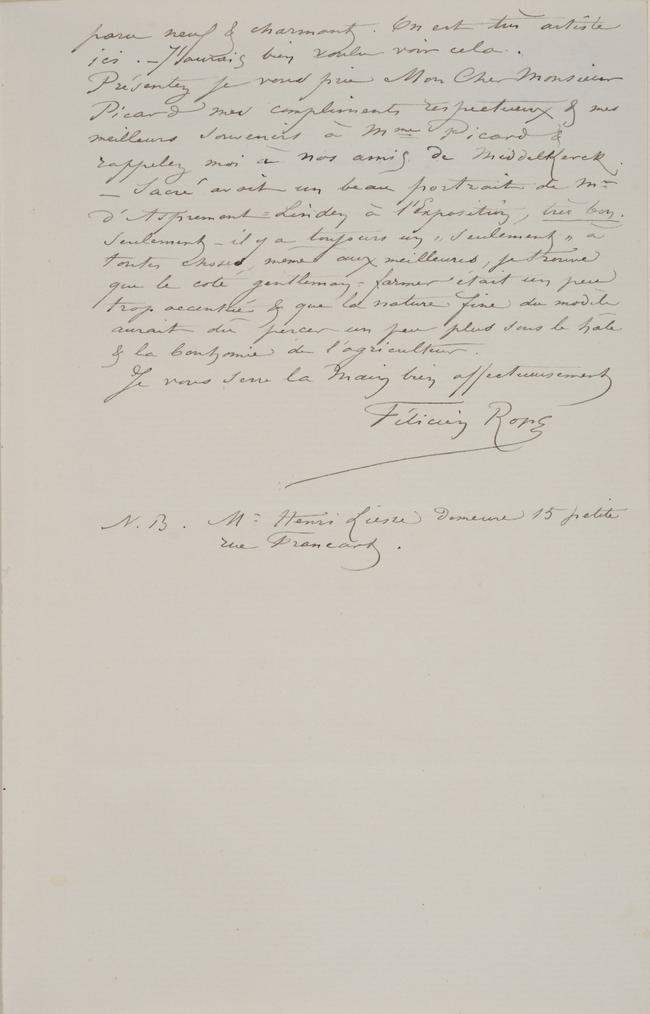 paru neuf & charmant. On est très artiste
ici. – J'aurais bien voulu voir cela.
Présentez je vous prie Mon Cher Monsieur
Picard mes compliments respectueux & mes
meilleurs souvenirs à Mme Picard &
rappelez moi à nos amis de Middelkerck.
– Sacré avait un beau portrait de Mr
d'Aspremont=Linden à l'Exposition, très bon.
Seulement – il y a toujours un „seulement" à
toutes choses, même aux meilleures, je trouve
que le coté gentleman=farmer était un peu
trop accentué & que la nature fine du modèle
aurait dû percer un peu plus sous le hâle
& la bonhomie de l'agriculteur.
Je vous serre la Main bien affectueusement
Félicien Rops
N. B. Mr Henri Liesse demeure 15 petite
rue Francart.